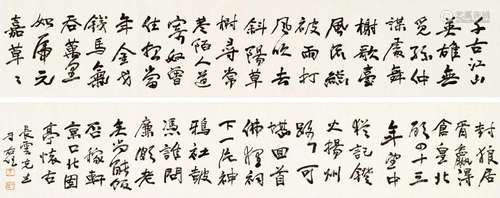 千古江山
英雄無
覓孫仲
謀處舞
榭歌臺
風流總
被雨打
風吹去
斜陽草
樹尋常
巷陌人道
寄奴曾
住想當
年金戈
鐵馬氣
吞萬里
如虎元
嘉草々
封狼居
胥贏得
倉皇北
顧四十三
年望中
猶記鐙
火揚州
路可
堪回首
佛狸祠
下一片神
鴉社鼓
憑誰問
廉頗老
矣尚能飯
否稼軒
京口北固
亭懷古
長雲先生
于右任